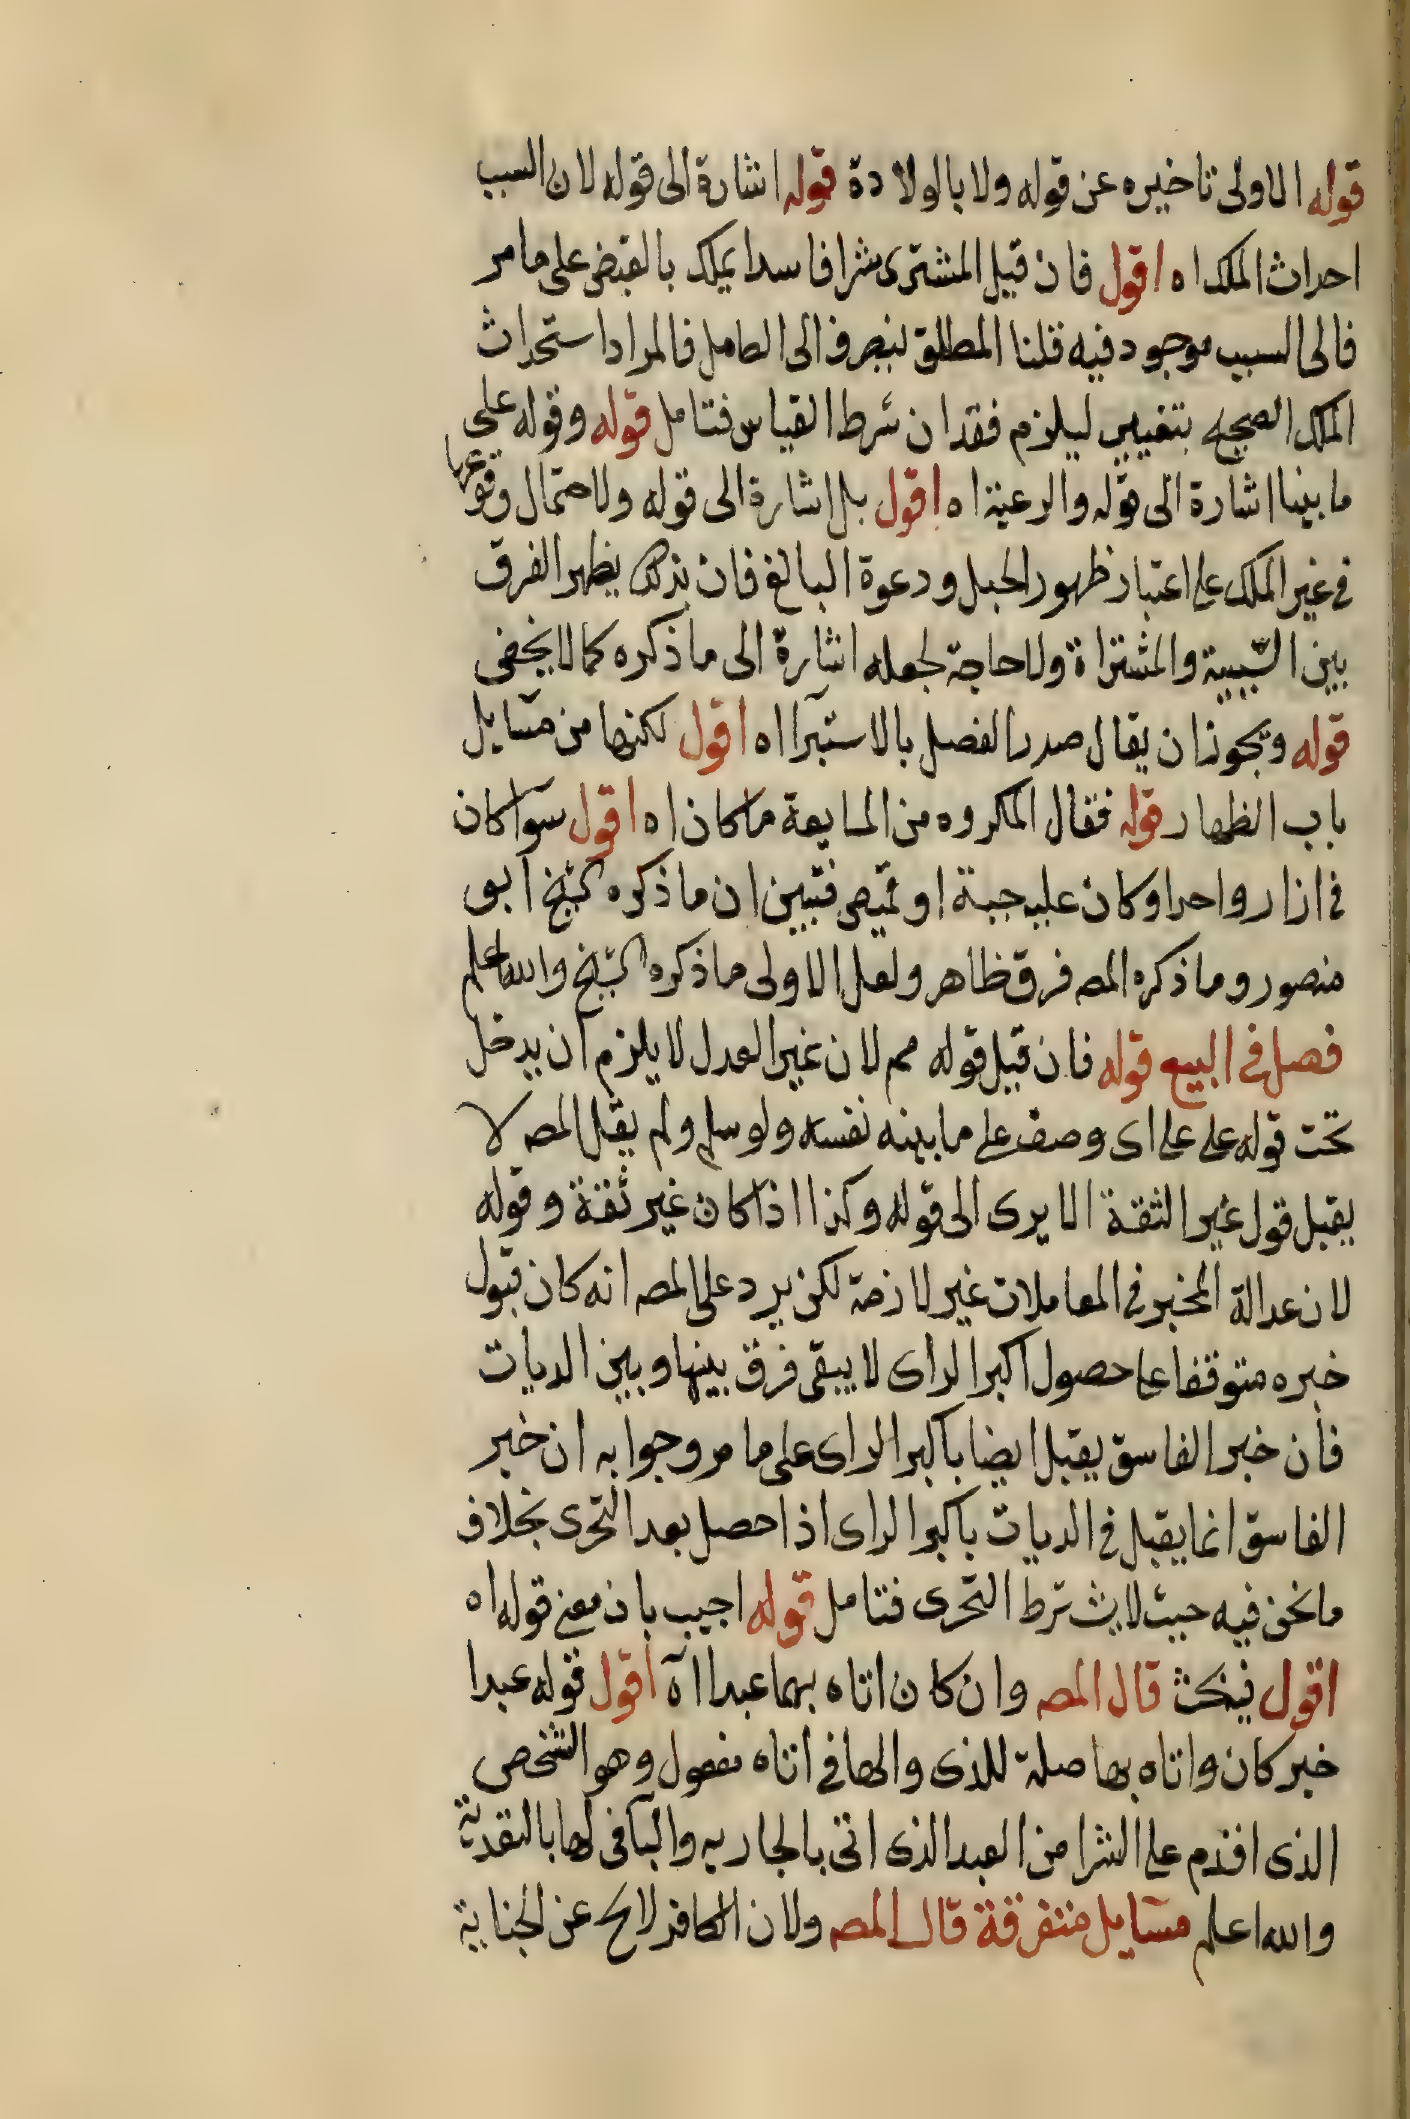 قوله الاولى تاخيره عن قوله ولا بالولادة قوله اشارة الى قوله لان السبب
احداث الملك اه اقول فان قيل المشترى شرا فاسدا يملك بالقبض على ما مر
فالى السبب موجود فيه قلنا المطلق ينصرف الى الكامل فالمراد استحداث
الملك الصحيح بتغيير ليلزم فقدان شرط القياس فتامل قوله وقوله على
ما بينا اشارة الى قوله والرغبة اه اقول بل اشارة الى قوله ولاحتمال وقوعها
فى غير الملك على اعتبار ظهور الحبل ودعوة البائع فان بذلك يظهر الفرق
بين السّبية والمشتراة ولا حاجة لجعله اشارة الى ما ذكره كما لا يخفى
قوله ويجوز ان يقال صدر الفصل بالاستبرا اه اقول لكنها من مسايل
باب الظهار قوله فقال المكروه من المعانقة ما كان اه اقول سوا كان
فى ازار واحد او كان عليه جبة او قميص فتبين ان ما ذكره الشيخ ابو
منصور وما ذكره المصـ فرق ظاهر ولعل الاولى ما ذكره الشيخ والله اعلم
فصل فى البيع قوله فان قيل قوله مم لان غير العدل لا يلزم ان يدخل
تحت قوله على على اى وصف على ما بينه نفسه ولو سلم ولم يقل المصـ لا
يقبل قول غير الثقة الا يرى الى قوله وكذا اذا كان غير ثقة وقوله
لان عدالة المخبر فى المعاملات غير لازمة لكن يرد على المصـ انه كان قبول
خبره متوقفا على حصول اكبر الراى لا يبقى فرق بينها وبين الديات
فان خبر الفاسق يقبل ايضا باكبر الراى على ما مر وجوابه ان خبر
الفاسق انما يقبل فى الديات باكبر الراى اذا حصل بعد التحرى بخلاف
ما نحن فيه حيث لا يشترط التحرى فتامل قوله اجيب بان معنى قوله اه
اقول فيه بحث قال المصـ وان كان اتاه بهما عبدا آه اقول قوله عبدا
خبر كان واتاه بها صلة للذى والها فى اتاه مفعول وهو الشخص
الذى اقدم على الشرا من العبد الذى اتى بالجاريه والبا فى لها بالتقدية
والله اعلم مسايل متفرقة قال المصـ ولان الكافر لا يخ عن الجناية